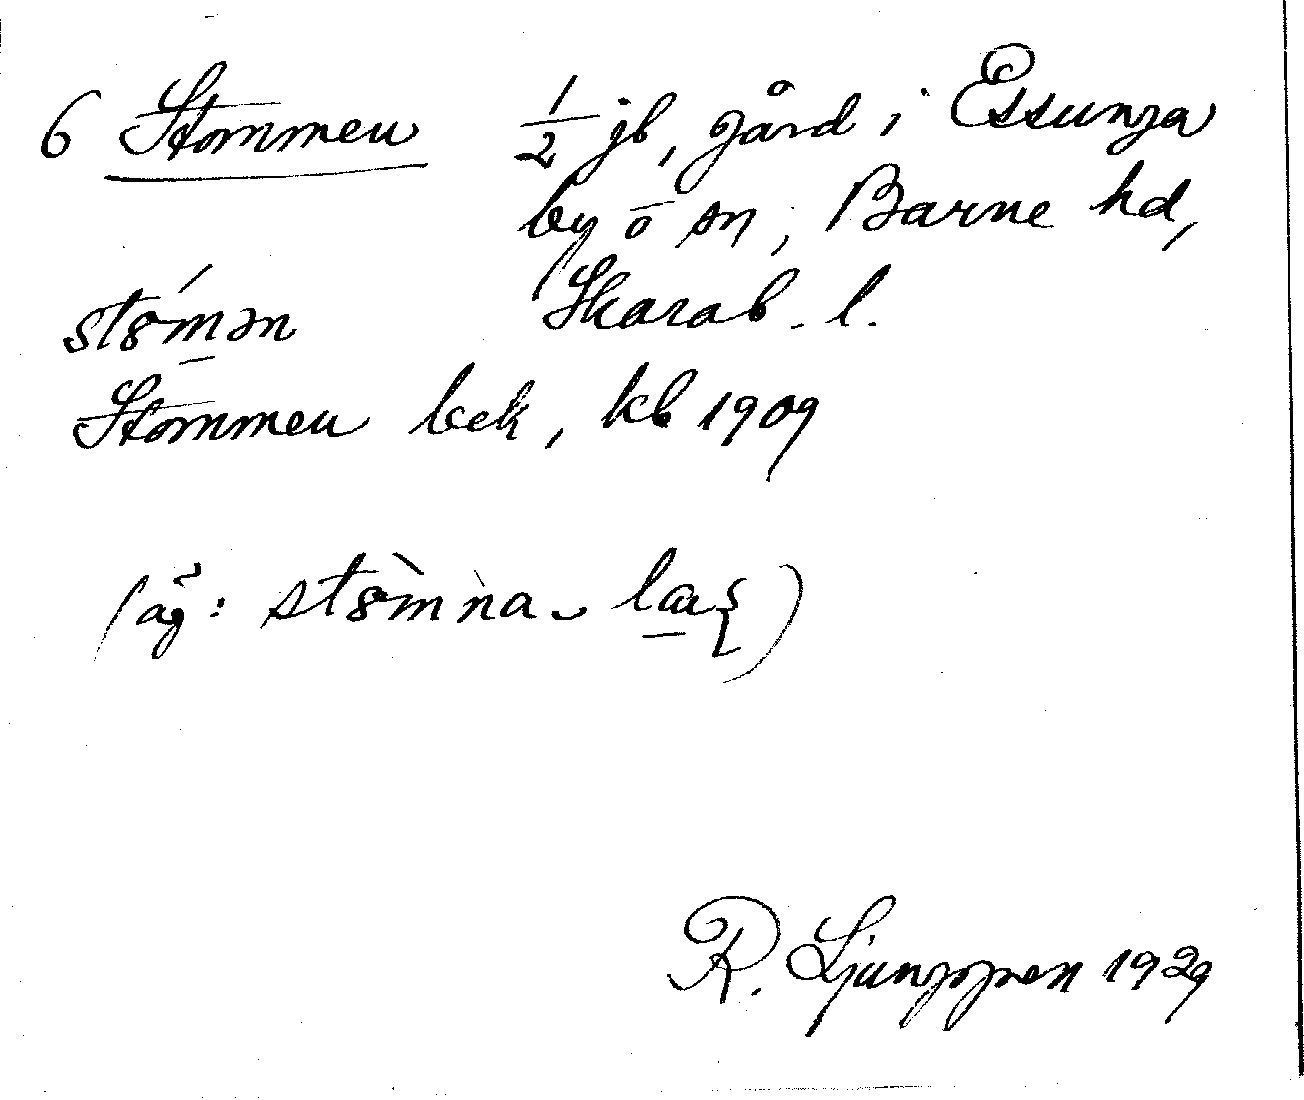 6 Stommen ½ jb, gård i Essunga
by o sn, Barne hd,
Skarab. l.
stómən
Stommen bek, kb 1909
(äg: stòmǹa-
R. Ljunggren 1929